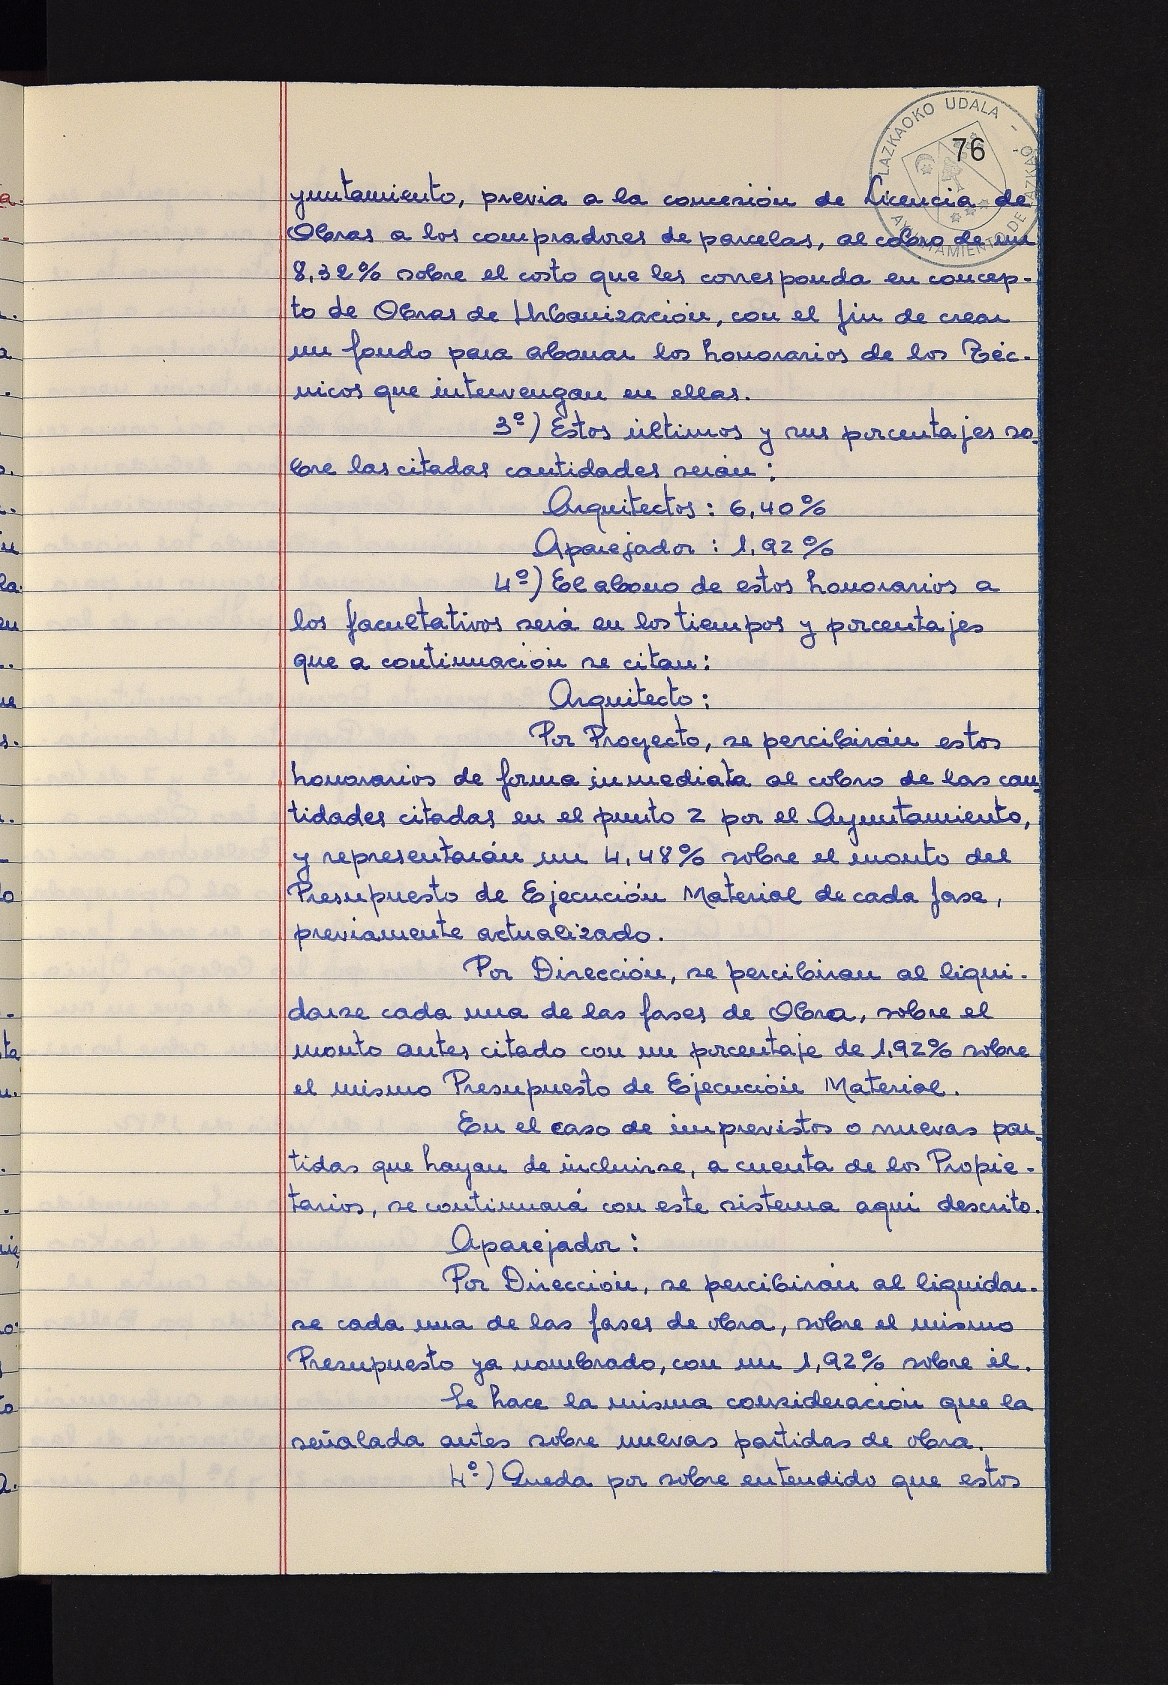 LAZKAOKO UDALA - AYUNTAMIENTO DE LAZKAO
76
yuntamiento, previa a la concesión de Licencia de
Obras a los compradores de parcelas, al cobro de un
8,32% sobre el costo que les corresponda en concep-
to de Obras de Urbanización, con el fin de crear
un fondo para abonar los honorarios de los Téc-
nicos que intervengan en ellas.
3º) Estos últimos y sus porcentajes so-
bre las citadas cantidades serán:
Arquitectos: 6,40%
Aparejador: 1,92%
4º) El abono de estos honorarios a
los facultativos será en los tiempos y porcentajes
que a continuación se citan:
Arquitecto:
Por Proyecto, se percibirán estos
honorarios de forma inmediata al cobro de las can-
tidades citadas en el punto 2 por el Ayuntamiento,
y representarán un 4,48% sobre el monto del
Presupuesto de Ejecución Material de cada fase,
previamente actualizado.
Por Dirección, se percibiran al liqui-
darse cada una de las fases de Obra, sobre el
monto antes citado con un porcentaje de 1,92% sobre
el mismo Presupuesto de Ejecución Material.
En el caso de imprevistos o nuevas par-
tidas que hayan de incluirse, a cuenta de los Propie-
tarios, se continuará con este sistema aquí descrito.
Aparejador:
Por Dirección, se percibirán al liquidar-
se cada una de las fases de obra, sobre el mismo
Presupuesto ya nombrado, con un 1,92% sobre él.
Se hace la misma consideración que la
señalada antes sobre nuevas partidas de obra.
4º) Queda por sobre entendido que estos